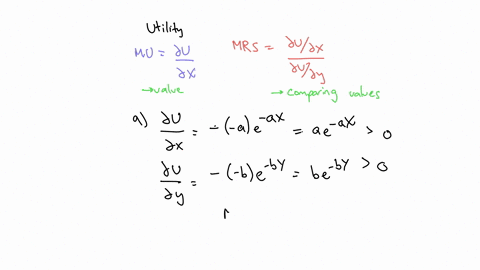 Utility
MU = ∂U/∂x
MRS = ∂U/∂x / ∂U/∂y
→value
→comparing values
a) ∂U/∂x = -(-a)e^-ax = ae^-ax > 0
∂U/∂y = -(-b)e^-by = be^-by > 0